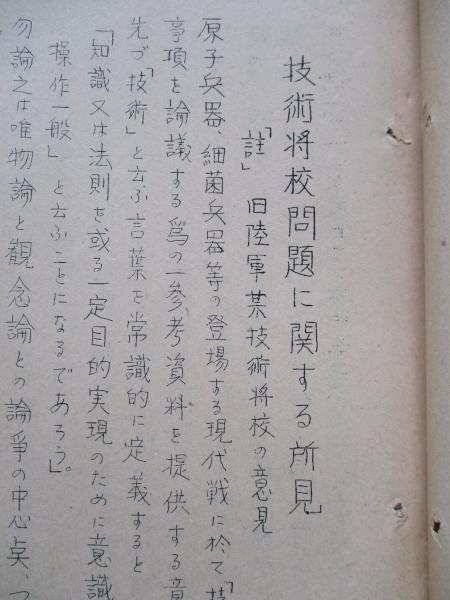 技術將校問題に関する所見
「註」 旧陸軍某技術將校の意見
原子兵器 細菌兵器等の登場する現代戦に於て「技
事項を論議する爲の一参考資料を提供する意
先づ「技術」と云ふ言葉を常識的に定義すると
「知識又は法則を或る一定目的実現のために意識
操作一般」 と云ふことになるであろう」。
勿論之は唯物論と観念論との論爭の中心点、つ